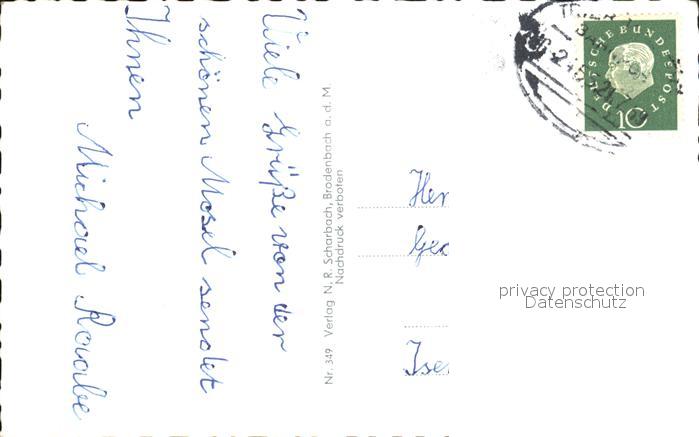 Viele Grüße von der
schönen Mosel sendet
Ihnen
Michael Raabe
Nr. 349 Verlag N. R. Scharbach, Brodenbach a. d. M.
Nachdruck verboten
DEUTSCHE BUNDESPOST
10
Her
Geo
Ise
privacy protection
Datenschutz